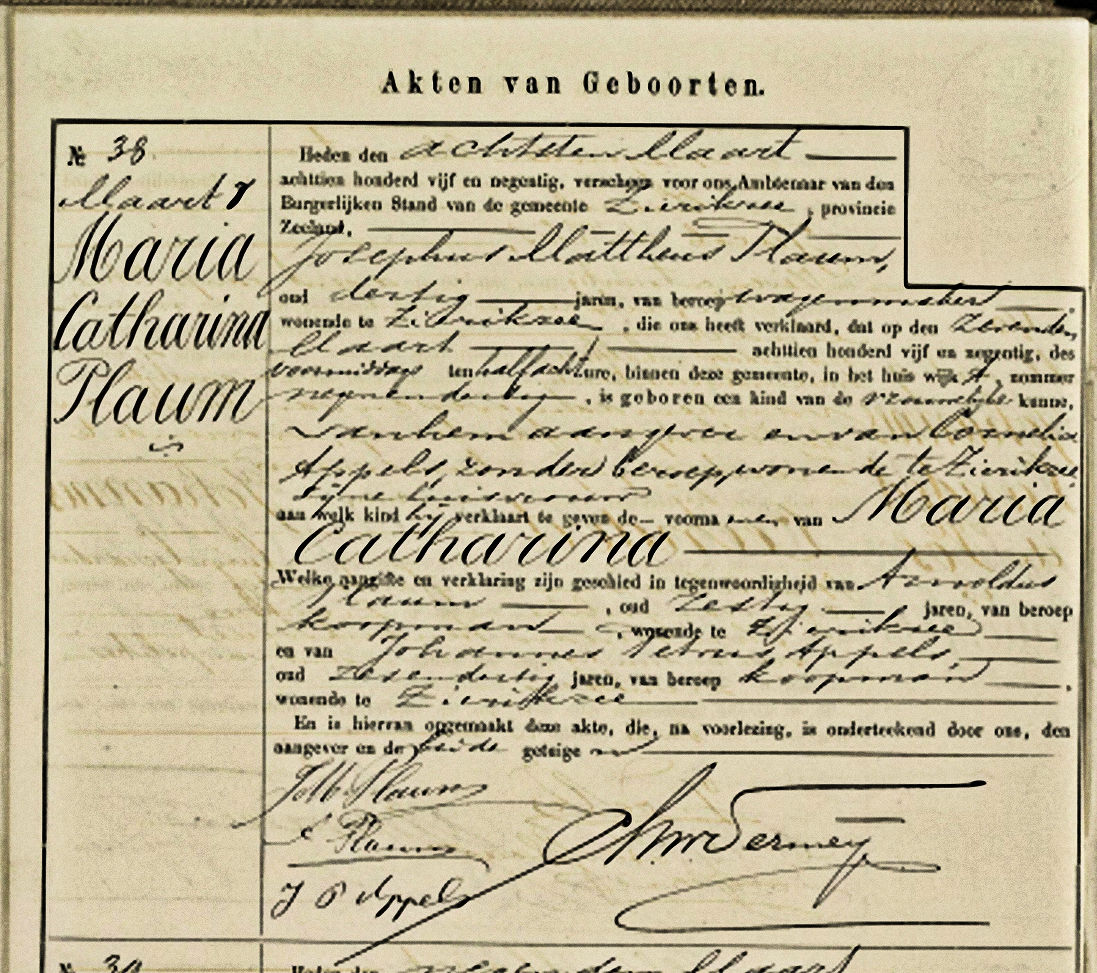 Akten van Geboorten.
№ 38.
Maart 8
Maria
Catharina
Plaum
Heden den achtsten Maart
achttien honderd vijf en negentig, verscheen voor ons Ambtenaar van den
Burgerlijken Stand van de gemeente Zierikzee, provincie
Zeeland,
Josephus Mattheus Plaum,
oud dertig jaren, van beroep wagenmaker
wonende te Zierikzee, die ons heeft verklaard, dat op den zevenden
Maart achttien honderd vijf en negentig, des
voormiddags ten half acht ure, binnen deze gemeente, in het huis wijk A, nommer
negenendertig, is geboren een kind van de vrouwelijke kunne,
van hem aangever en van Cornelia
Appels, zonder beroep, wonende te Zierikzee
zijne huisvrouw
aan welk kind hij verklaart te geven de voornamen van Maria
Catharina
Welke aangifte en verklaring zijn geschied in tegenwoordigheid van Arnoldus
Plaum, oud zestig jaren, van beroep
koopman, wonende te Zierikzee
en van Johannes Petrus Appels,
oud zesendertig jaren, van beroep koopman,
wonende te Zierikzee
En is hiervan opgemaakt deze akte, die, na voorlezing, is onderteekend door ons, den
aangever en de beide getuigen
J M Plaum
Plaum
J P Appels
Vermeij
№ 39
Heden den negenden Maart